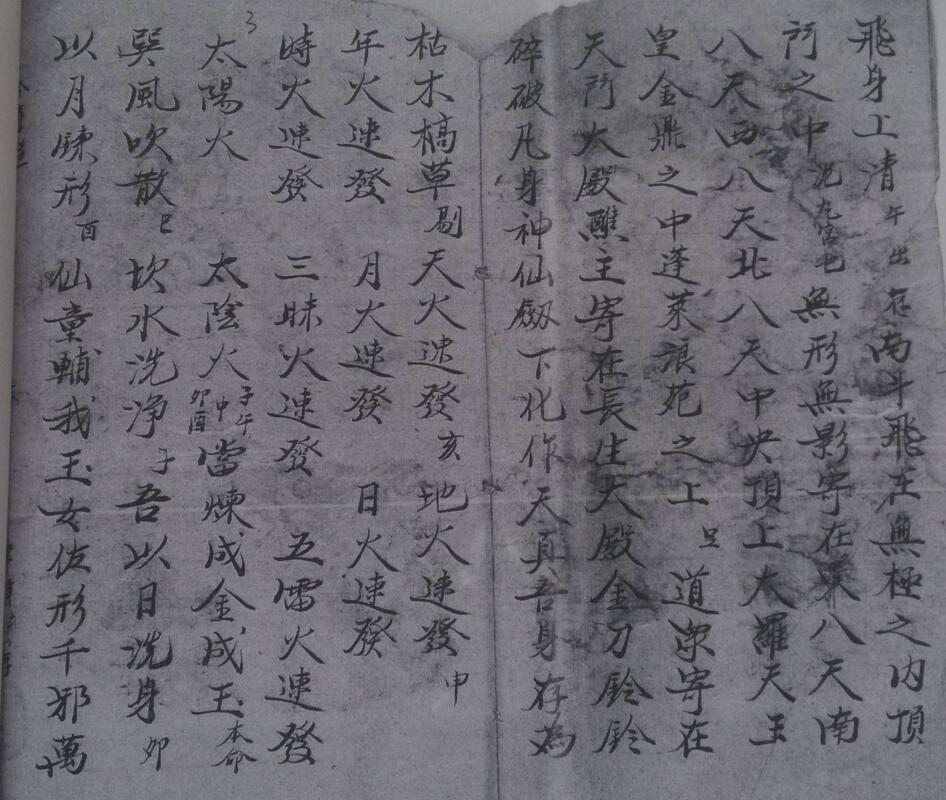 飛身上清午出存南斗飛在無極之內頂
門之中泥丸宮也無形無影寄在東八天南
八天西八天北八天中央頂上大羅天玉
皇金鼎之中蓬萊浪苑之上 道眾寄在
天門大殿醮主寄在長生大殿金刀鈴鈴
碎破凡身神仙劔下化作天真吾身存為
枯木槁草 天火速發亥地火速發申
年火速發 月火速發 日火速發
時火速發 三昧火速發 五雷火速發
太陽火 太陰火子午卯酉中當煉成金成玉本命
巽風吹散巳 坎水洗净子吾以日洗身卯
以月煉形酉仙童輔我玉女佐形千邪萬